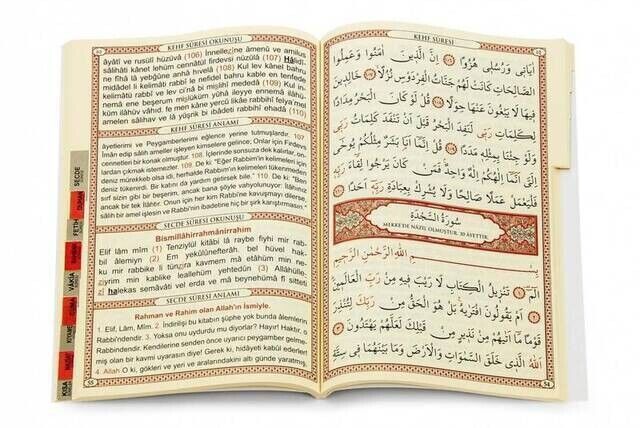 KEHF SÛRESİ OKUNUŞU
âyâtî ve rusulî hüzüvâ (106) İnnellezîne âmenû ve amilus
sâlihâti kânet lehüm cennâtül firdevsi nüzülâ (107) Hâlidî-
ne fîhâ lâ yebğûne anhâ hıvelâ (108) Kul lev kânel bahru
midâdel li kelimâti rabbî le nefidel bahru kable en tenfede
kelimâtü rabbî ve lev ci'nâ bi mislihî mededâ (109) Kul in-
nemâ ene beşerum mislüküm yûhâ ileyye ennemâ ilâhü-
küm ilâhüv vâhid, fe men kâne yercû likâe rabbihî felya'mel
amelen sâlihav ve lâ yüşrik bi ıbâdeti rabbihî ehadâ (110)
KEHF SÛRESİ ANLAMI
âyetlerimi ve Peygamberlerimi eğlence yerine tutmuşlardır. 107.
İman edip sâlih ameller işleyen kimselere gelince; Onlar için Firdevs
cennetleri bir konak olmuştur. 108. İçlerinde sonsuza dek kalırlar, on-
dan çıkmak istemezler. 109. De ki: "Eğer Rabbim'in kelimeleri için
deniz mürekkeb olsa idi, herhalde Rabbim'in kelimeleri tükenmeden
deniz tükenirdi. Bir katını da yardım getirsek bile." 110. De ki: "Ben
sırf sizin gibi bir beşerim, ancak bana şöyle vahyolunuyor: İlâhınız
ancak bir tek İlâhtır. Onun için her kim Rabbi'ne kavuşmayı dilerse,
sâlih bir amel işlesin ve Rabbi'nin ibadetine hiç bir şirk karıştırmasın."
SECDE SÛRESİ OKUNUŞU
Bismillâhirrahmânirrahim
Elif lâm mîm (1) Tenziylül kitâbi lâ raybe fîhi mir rab-
bil âlemiyn (2) Em yekûlûnefterâh, bel hüvel hak-
ku mir rabbike li tünzira kavmem mâ etâhüm min ne-
ziyrim min kablike leallehüm yehtedûn (3) Allâhülle-
zî halekas semâvâti vel erda ve mâ beynehümâ fî sitteti
SECDE SÛRESİ ANLAMI
Rahman ve Rahim olan Allah'ın İsmiyle.
1. Elif, Lâm, Mîm. 2. İndirilişi bu kitabın şüphe yok bunda âlemlerin
Rabbi'ndendir. 3. Yoksa onu uydurdu mu diyorlar? Hayır! Haktır, o
Rabbi'ndendir. Kendilerine senden önce uyarıcı peygamber gelme-
miş olan bir kavmi uyarasın diye! Gerek ki, hidâyeti kabul ederler!
4. Allah O ki, gökleri ve yeri ve aralarındakini altı günde yaratmış,
SECDE
DUHAN
FETH
VÂKIA
KIYAMET
KISA
KEHF SÛRESİ
اٰيَاتِى وَرُسُلِى هُزُوًا ﴿١٠٦﴾ اِنَّ الَّذِينَ اٰمَنُوا وَعَمِلُوا
الصَّالِحَاتِ كَانَتْ لَهُمْ جَنَّاتُ الْفِرْدَوْسِ نُزُلًا ﴿١٠٧﴾ خَالِدِينَ
فِيهَا لَا يَبْغُونَ عَنْهَا حِوَلًا ﴿١٠٨﴾ قُلْ لَوْ كَانَ الْبَحْرُ مِدَادًا
لِكَلِمَاتِ رَبِّى لَنَفِدَ الْبَحْرُ قَبْلَ اَنْ تَنْفَدَ كَلِمَاتُ رَبِّى
وَلَوْ جِئْنَا بِمِثْلِهِ مَدَدًا ﴿١٠٩﴾ قُلْ اِنَّمَا اَنَا بَشَرٌ مِثْلُكُمْ يُوحَى
اِلَىَّ اَنَّمَا اِلٰهُكُمْ اِلٰهٌ وَاحِدٌ فَمَنْ كَانَ يَرْجُوا لِقَاءَ
رَبِّهِ فَلْيَعْمَلْ عَمَلًا صَالِحًا وَلَا يُشْرِكْ بِعِبَادَةِ رَبِّهِ اَحَدًا ﴿١١٠﴾
سُورَةُ السَّجْدَةِ
MEKKE'DE NÂZİL OLMUŞTUR. 30 ÂYETTİR.
بِسْمِ اللهِ الرَّحْمٰنِ الرَّحِيمِ
الٓمٓ ﴿١﴾ تَنْزِيلُ الْكِتَابِ لَا رَيْبَ فِيهِ مِنْ رَبِّ الْعَالَمِينَ
﴿٢﴾ اَمْ يَقُولُونَ افْتَرٰيهُ بَلْ هُوَ الْحَقُّ مِنْ رَبِّكَ لِتُنْذِرَ
قَوْمًا مَا اَتٰيهُمْ مِنْ نَذِيرٍ مِنْ قَبْلِكَ لَعَلَّهُمْ يَهْتَدُونَ ﴿٣﴾
اَللهُ الَّذِى خَلَقَ السَّمٰوَاتِ وَالْاَرْضَ وَمَا بَيْنَهُمَا فِى سِتَّةِ